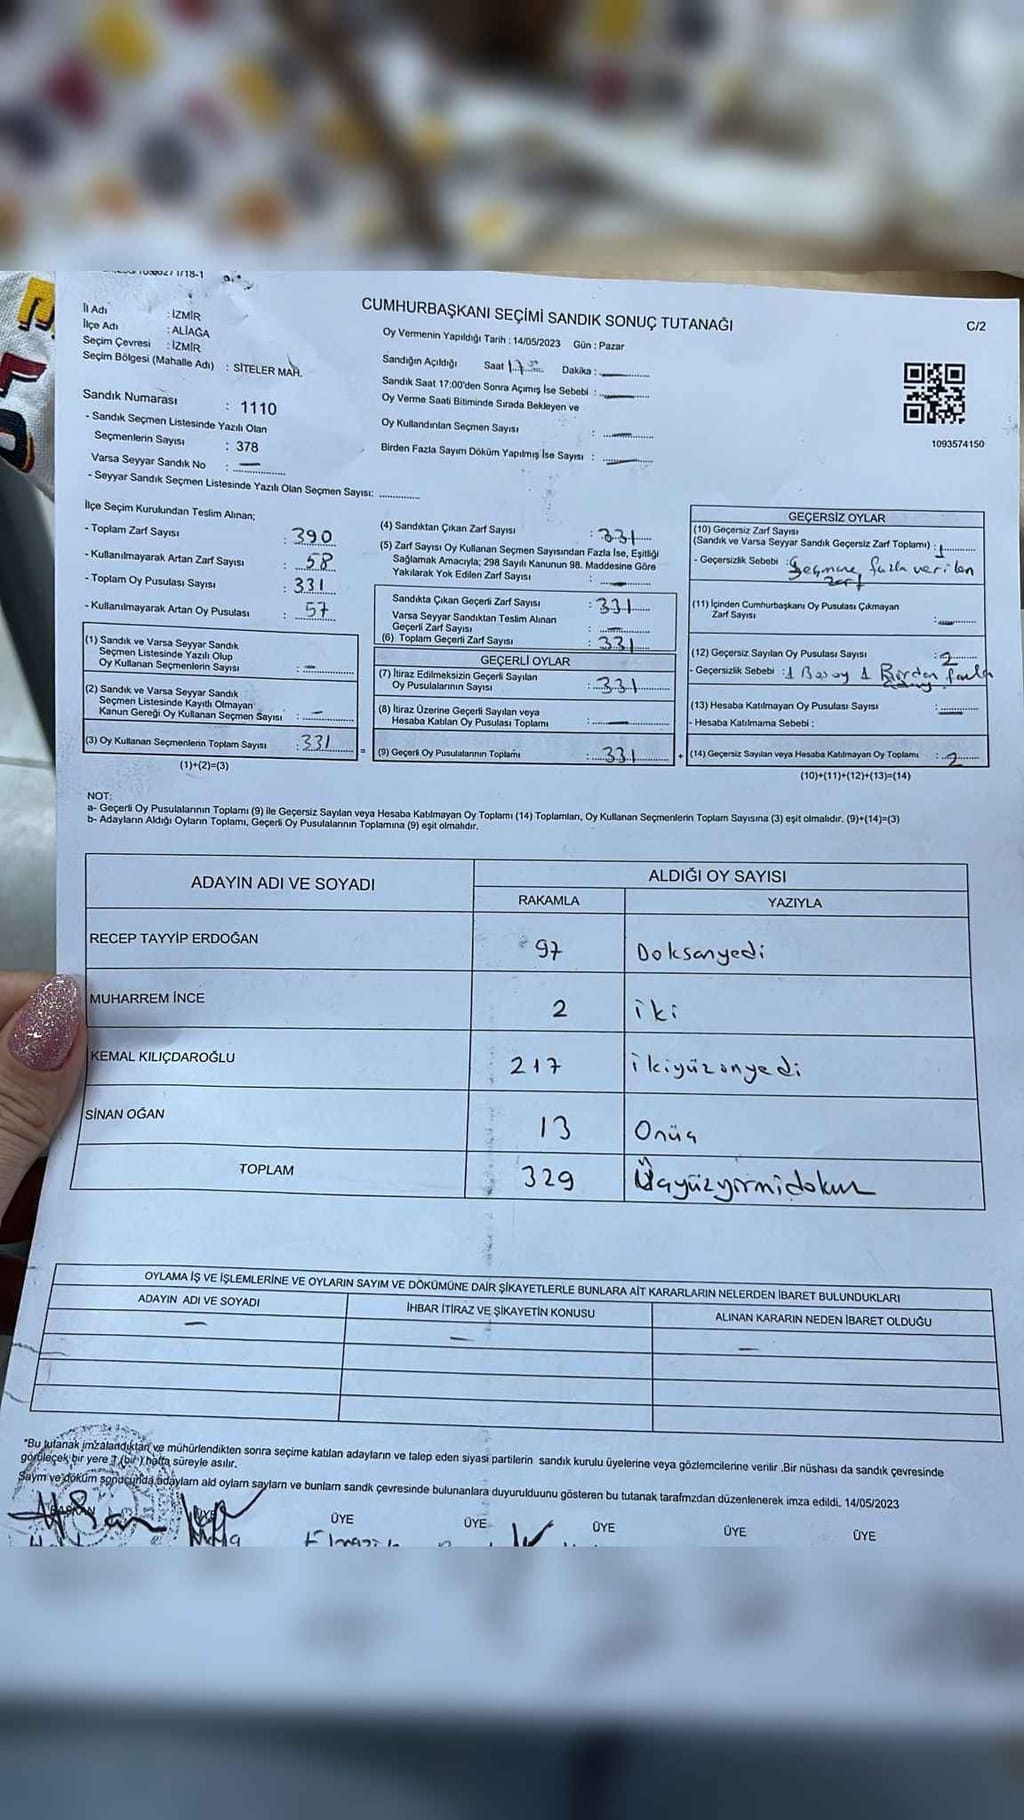 CUMHURBAŞKANI SEÇİMİ SANDIK SONUÇ TUTANAĞI
C/2
İl Adı : İZMİR
İlçe Adı : ALİAĞA
Seçim Çevresi : İZMİR
Seçim Bölgesi (Mahalle Adı) : SİTELER MAH.
Sandık Numarası : 1110
- Sandık Seçmen Listesinde Yazılı Olan
Seçmenlerin Sayısı : 378
Varsa Seyyar Sandık No :
- Seyyar Sandık Seçmen Listesinde Yazılı Olan Seçmen Sayısı:
Oy Vermenin Yapıldığı Tarih : 14/05/2023 Gün : Pazar
Sandığın Açıldığı Saat 17 Dakika :
Sandık Saat 17:00'den Sonra Açımış İse Sebebi :
Oy Verme Saati Bitiminde Sırada Bekleyen ve
Oy Kullandırılan Seçmen Sayısı :
Birden Fazla Sayım Döküm Yapılmış İse Sayısı :
1093574150
İlçe Seçim Kurulundan Teslim Alınan;
- Toplam Zarf Sayısı : 390
- Kullanılmayarak Artan Zarf Sayısı : 58
- Toplam Oy Pusulası Sayısı : 331
- Kullanılmayarak Artan Oy Pusulası : 57
(1) Sandık ve Varsa Seyyar Sandık
Seçmen Listesinde Yazılı Olup
Oy Kullanan Seçmenlerin Sayısı : –
(2) Sandık ve Varsa Seyyar Sandık
Seçmen Listesinde Kayıtlı Olmayan
Kanun Gereği Oy Kullanan Seçmen Sayısı : –
(3) Oy Kullanan Seçmenlerin Toplam Sayısı : 331 =
(1)+(2)=(3)
(4) Sandıktan Çıkan Zarf Sayısı : 331
(5) Zarf Sayısı Oy Kullanan Seçmen Sayısından Fazla İse, Eşitliği
Sağlamak Amacıyla; 298 Sayılı Kanunun 98. Maddesine Göre
Yakılarak Yok Edilen Zarf Sayısı : –
Sandıkta Çıkan Geçerli Zarf Sayısı : 331
Varsa Seyyar Sandıktan Teslim Alınan
Geçerli Zarf Sayısı : –
(6) Toplam Geçerli Zarf Sayısı : 331
GEÇERLİ OYLAR
(7) İtiraz Edilmeksizin Geçerli Sayılan
Oy Pusulalarının Sayısı : 331
(8) İtiraz Üzerine Geçerli Sayılan veya
Hesaba Katılan Oy Pusulası Toplamı : –
(9) Geçerli Oy Pusulalarının Toplamı : 331 +
GEÇERSİZ OYLAR
(10) Geçersiz Zarf Sayısı
(Sandık ve Varsa Seyyar Sandık Geçersiz Zarf Toplamı) : 1
- Geçersizlik Sebebi : Seçmene fazla verilen
zarf
(11) İçinden Cumhurbaşkanı Oy Pusulası Çıkmayan
Zarf Sayısı : –
(12) Geçersiz Sayılan Oy Pusulası Sayısı : 2
- Geçersizlik Sebebi : 1 Boş oy 1 Birden fazla
(13) Hesaba Katılmayan Oy Pusulası Sayısı : –
- Hesaba Katılmama Sebebi :
(14) Geçersiz Sayılan veya Hesaba Katılmayan Oy Toplamı : 2
(10)+(11)+(12)+(13)=(14)
NOT:
a- Geçerli Oy Pusulalarının Toplamı (9) ile Geçersiz Sayılan veya Hesaba Katılmayan Oy Toplamı (14) Toplamları, Oy Kullanan Seçmenlerin Toplam Sayısına (3) eşit olmalıdır. (9)+(14)=(3)
b- Adayların Aldığı Oyların Toplamı, Geçerli Oy Pusulalarının Toplamına (9) eşit olmalıdır.
ADAYIN ADI VE SOYADI ALDIĞI OY SAYISI
RAKAMLA YAZIYLA
RECEP TAYYİP ERDOĞAN 97 Doksanyedi
MUHARREM İNCE 2 iki
KEMAL KILIÇDAROĞLU 217 ikiyüzonyedi
SİNAN OĞAN 13 Onüç
TOPLAM 329 Üçyüzyirmidokuz
OYLAMA İŞ VE İŞLEMLERİNE VE OYLARIN SAYIM VE DÖKÜMÜNE DAİR ŞİKAYETLERLE BUNLARA AİT KARARLARIN NELERDEN İBARET BULUNDUKLARI
ADAYIN ADI VE SOYADI İHBAR İTİRAZ VE ŞİKAYETİN KONUSU ALINAN KARARIN NEDEN İBARET OLDUĞU
– – –
"Bu tutanak imzalandıktan ve mühürlendikten sonra seçime katılan adayların ve talep eden siyasi partilerin sandık kurulu üyelerine veya gözlemcilerine verilir .Bir nüshası da sandık çevresinde
görülecek bir yere 1 (bir ) hafta süreyle asılır.
Sayım ve döküm sonucunda adaylarn ald oylarn saylarn ve bunlarn sandk çevresinde bulunanlara duyurulduunu gösteren bu tutanak tarafmzdan düzenlenerek imza edildi. 14/05/2023
ÜYE ÜYE ÜYE ÜYE ÜYE